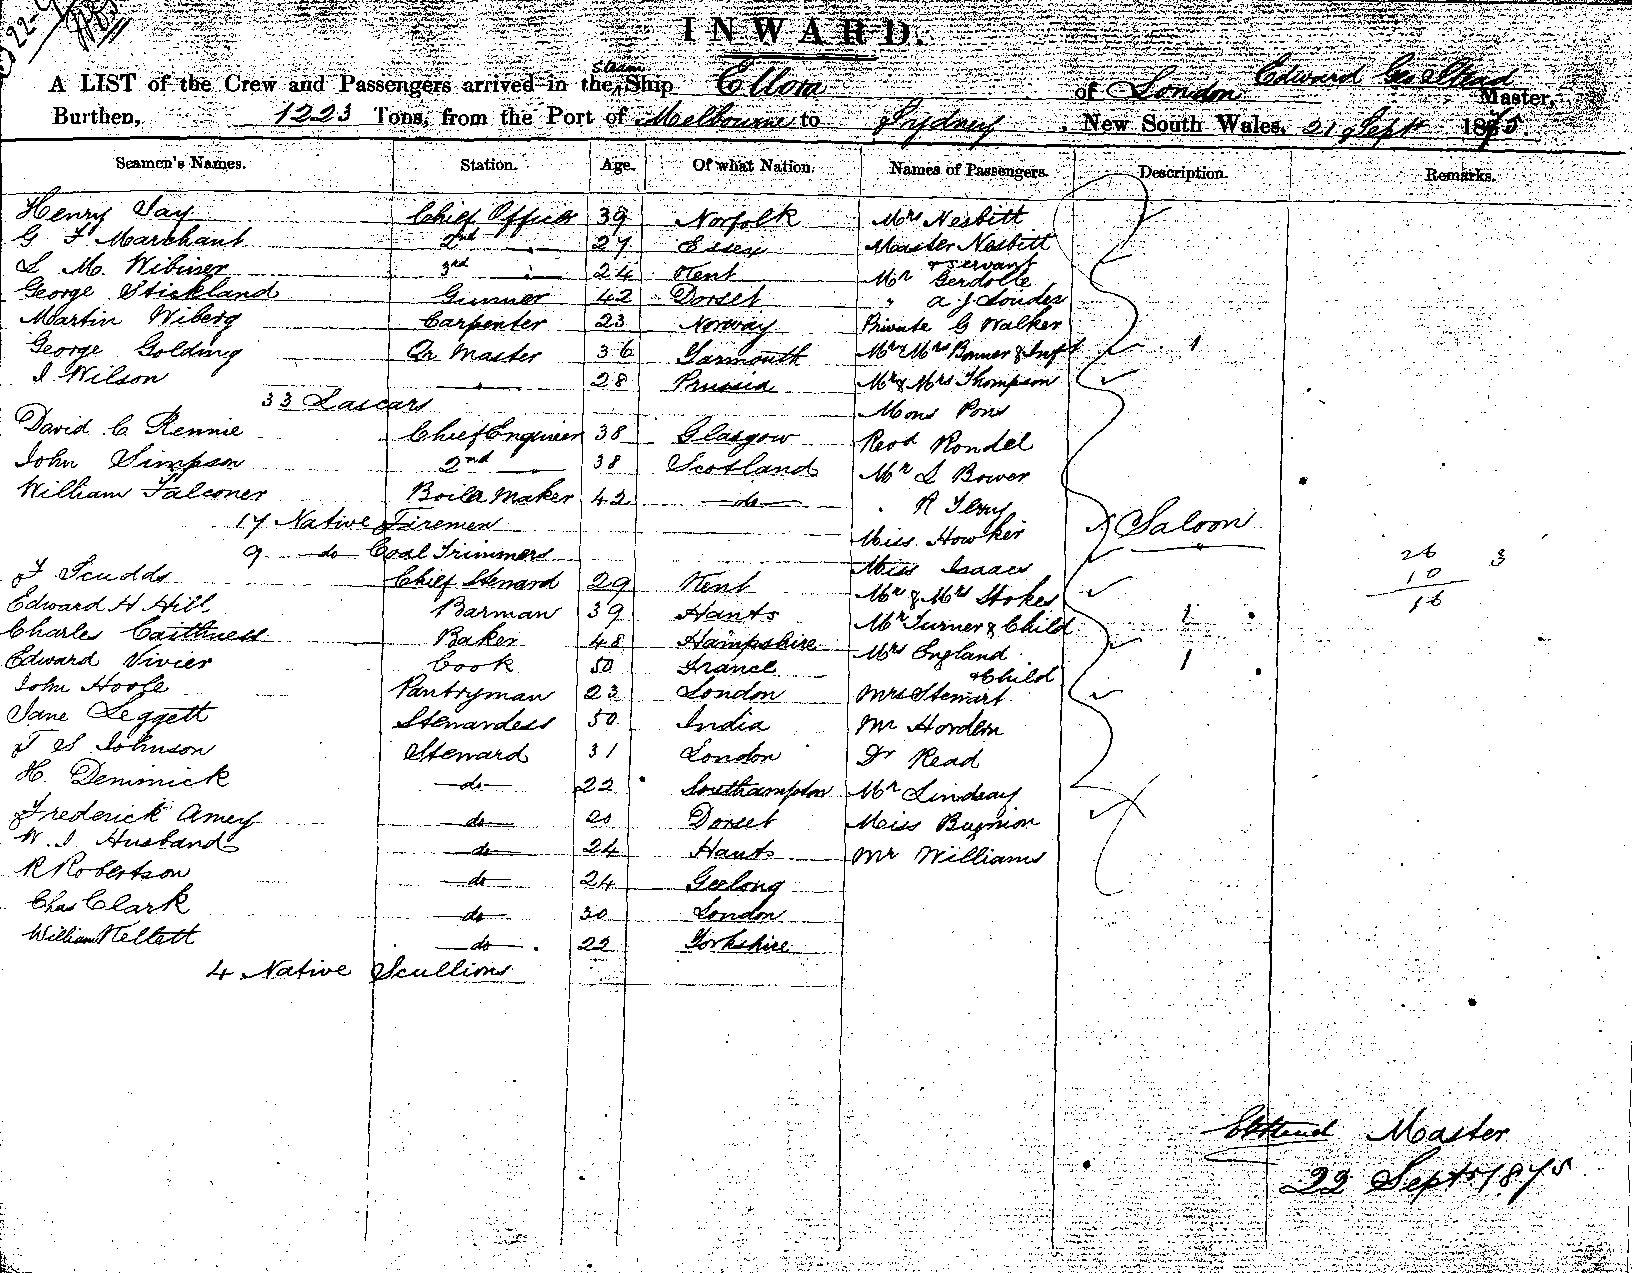 INWARD.
A LIST of the Crew and Passengers arrived in the Steam Ship Ellora of London Edward Geo Stead Master,
Burthen, 1223 Tons, from the Port of Melbourne to Sydney, New South Wales, 21 Sept 1875.
Seamen's Names. Station. Age. Of what Nation. Names of Passengers. Description. Remarks.
Henry Jay Chief Officer 39 Norfolk Mrs Nesbitt
G F Marchant 2nd " 27 Essex Master Nesbitt
& Servant
L M. Wibmer 3rd " 24 Kent Mr Gerdolle
George Stickland Gunner 42 Dorset " A J Souder
Martin Wiberg Carpenter 23 Norway Private G Walker
George Golding Qr Master 36 Yarmouth Mr & Mrs Bonner & Inft 1
J Wilson " 28 Prussia Mr & Mrs Thompson
33 Lascars Mons Pons
David C Rennie Chief Engineer 38 Glasgow Revd Rondel
John Simpson 2nd 38 Scotland Mr S Bower
William Falconer Boiler Maker 42 do R Terry
17 Native Firemen Miss Howker Saloon
9 do Coal Trimmers Miss Isaacs
F Scudds Chief Steward 29 Kent Mr & Mrs Stokes
Edward H Hill Barman 39 Hants Mr Turner & Child 1
Charles Caithness Baker 48 Hampshire Mrs England
& Child 1
Edward Vivier Cook 50 France
John Hoose Pantryman 23 London Mrs Stewart
Jane Leggett Stewardess 50 India Mr Hordern
T S Johnson Steward 31 London Dr Read
H. Deminick do 22 Southampton Mr Lindsay
Frederick Amey do 20 Dorset Miss Bugnion
W. J Husband do 24 Hants Mr Williams
R Robertson do 24 Geelong
Chas Clark do 30 London
William Kellett do 22 Yorkshire
4 Native Scullions
26 3
10
16
Master
22 Sept 1875